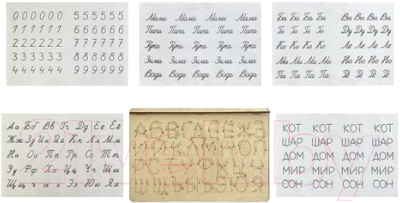 0 0 0 0 0 0 5 5 5 5 5 5
1 1 1 1 1 1 6 6 6 6 6 6
2 2 2 2 2 2 7 7 7 7 7 7
3 3 3 3 3 3 8 8 8 8 8 8
4 4 4 4 4 4 9 9 9 9 9 9
Мама Мама Мама Мама
Папа Папа Папа Папа
Рука Рука Рука Рука
Зима Зима Зима Зима
Вода Вода Вода Вода
Ба Ба Ба Ба Ве Ве Ве Ве
Го Го Го Го Ду Ду Ду Ду
Ко Ко Ко Ко
Ми Ми Ми Ми
Па Па Па Па
Аа Бб Вв Гг Дд Ее Ёё
Жж Зз Ии Йй Кк Лл Мм
Нн Оо Пп Рр Сс Тт
Уу Фф Хх Цц Чч Шш
Щщ ъ ы ь Ээ Юю Яя
АБВГДЕЁЖЗ
ИЙКЛМНОП
РСТУФХЦЧ
ШЩЪЫЬЭЮЯ
КОТ КОТ КОТ КОТ
ШАР ШАР ШАР ШАР
ДОМ ДОМ ДОМ ДОМ
МИР МИР МИР МИР
СОН СОН СОН СОН